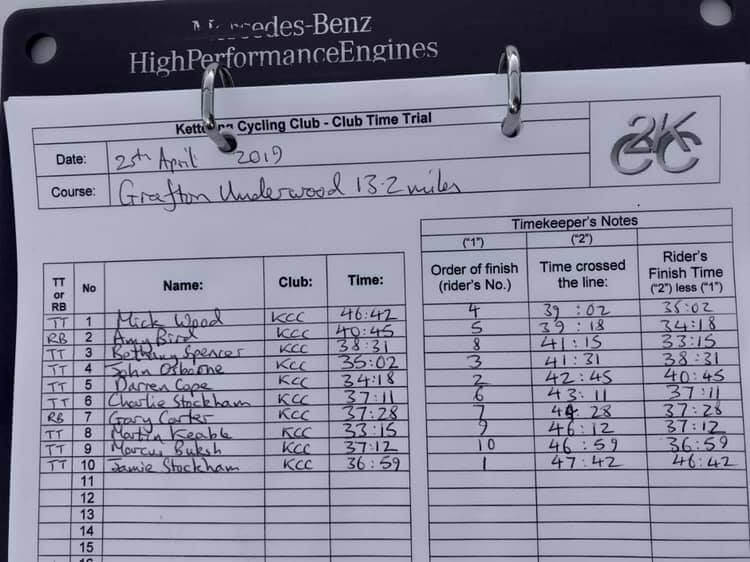 Mercedes-Benz
HighPerformanceEngines
Kettering Cycling Club - Club Time Trial
Date: 25th April 2019
Course: Grafton Underwood 13.2 miles
2K
CC
Timekeeper's Notes
("1") ("2")
TT or RB No Name: Club: Time: Order of finish (rider's No.) Time crossed the line: Rider's Finish Time ("2) less ("1")
TT 1 Mick Wood KCC 46:42 4 39:02 35:02
RB 2 Amy Bird KCC 40:45 5 39:18 34:18
TT 3 Bethany Spencer KCC 38:31 8 41:15 33:15
TT 4 John Osborne KCC 35:02 3 41:31 38:31
TT 5 Darren Cope KCC 34:18 2 42:45 40:45
TT 6 Charlie Stockham KCC 37:11 6 43:11 37:11
RB 7 Gary Carter KCC 37:28 7 44 28 37:28
TT 8 Martin Keable KCC 33:15 9 46:12 37:12
TT 9 Marcus Buksh KCC 37:12 10 46:59 36:59
TT 10 Jamie Stockham KCC 36:59 1 47:42 46:42
11
12
13
14
15